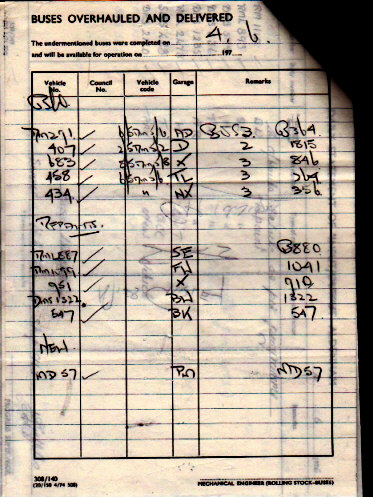 BUSES OVERHAULED AND DELIVERED
The undermentioned buses were completed on 4. 6.
and will be available for operation on 197
Vehicle No. Council No. Vehicle code Garage Remarks
RM291 ✓ AD B364
407 ✓ D 2 1815
683 ✓ X 3 846
458 ✓ TL 3 364
434 ✓ " NX 3 356
REPAINTS.
✓ SE B880
RM1099 ✓ FW 1041
951 ✓ X 910
1322. BW 1322
547 ✓ BK 547
NEW
MD57 ✓ PM MD57
308/140
(20/150 4/74 50B)
MECHANICAL ENGINEER (ROLLING STOCK—BUSES)